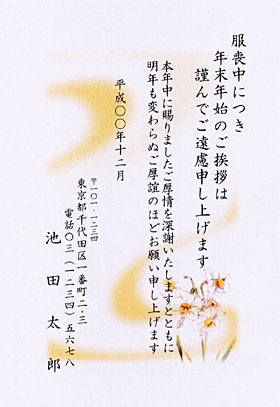 服喪中につき
年末年始のご挨拶は
謹んでご遠慮申し上げます
本年中に賜りましたご厚情を深謝いたしますとともに
明年も変わらぬご厚誼のほどお願い申し上げます
平成〇〇年十二月
〒一〇一-一二三四
東京都千代田区一番町二-三
電話〇三(一二三四)五六七八
池田太郎